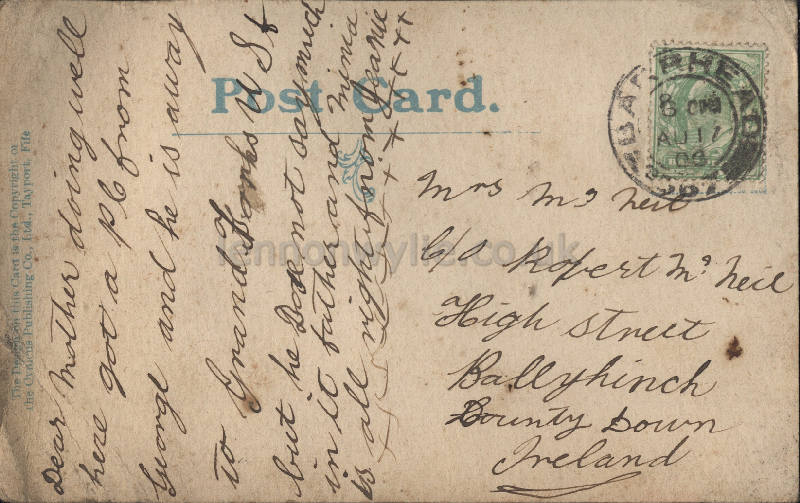 Dear Mother doing well
here got a PC from
George and he is away
to Grand Forks U St
but he Dose not say much
in it father and Mima
is all right from Jeanie
Post Card.
BARRHEAD
8 PM
AU 17
09
Mrs McNeil
C/o Robert McNeil
High Street
Ballyhinch
County Down
Ireland
The Design on this Card is the Copyright of
Publishing Co., Ltd., Tayport, Fife
lennonwylie.co.uk